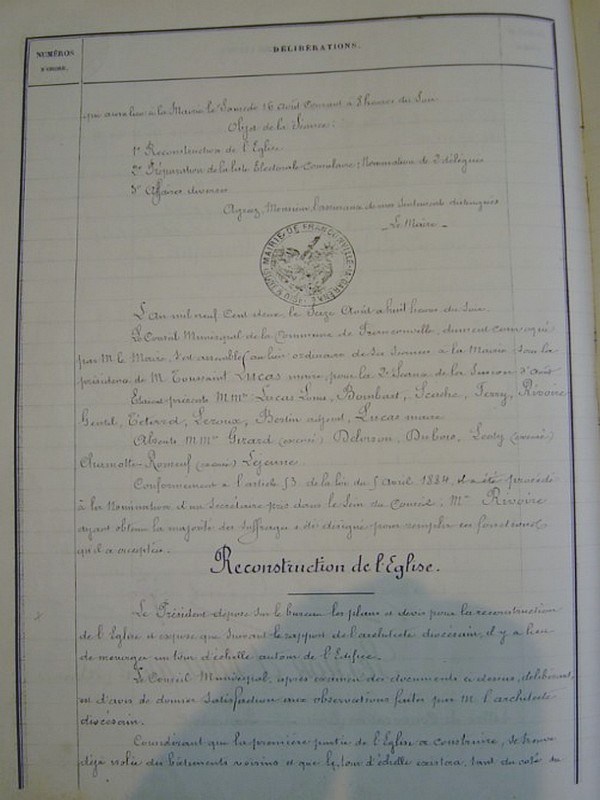 NUMÉROS
D'ORDRE.
DÉLIBÉRATIONS.
qui aura lieu à la Mairie le Samedi 16 Août Courant à 8 heures du Soir
Objet de la Séance :
1° Reconstruction de l'Eglise
2° Préparation de la liste Electorale Consulaire ; Nomination de 2 délégués
3° Affaires diverses
Agréez, Monsieur, l'assurance de mes Sentiments distingués
Le Maire
MAIRIE DE FRANCONVILLE-LA-GARENNE
L'An mil neuf Cent deux, le Seize Août à huit heures du Soir
Le Conseil Municipal de la Commune de Franconville, dûment convoqué
par M. le Maire, s'est assemblé au lieu ordinaire de ses Séances à la Mairie sous la
présidence de M. Toussaint Lucas maire, pour la 2e Séance de la Session d'Août
Etaient présents M.M. Lucas Louis, Bombart, Ferry, Rivoire
Gentil, Leroux, Bertin adjoint, Lucas maire
Absents M.M. Girard (excusé) Dubois, (excusé)
Charmotte-Romeuf (excusé) Lejeune
Conformément à l'article 53 de la loi du 5 Avril 1884, il a été procédé
à la Nomination d'un Secrétaire pris dans le Sein du Conseil, Mr Rivoire
ayant obtenu la majorité des Suffrages a été désigné pour remplir ces fonctions
qu'il a acceptées.
Reconstruction de l'Eglise.
Le Président dépose sur le bureau les plans et devis pour la reconstruction
de l'Eglise et expose que suivant le rapport de l'architecte diocésain, il y a lieu
de ménager un tour d'échelle autour de l'Edifice.
Le Conseil Municipal, après examen des documents ci-dessus, délibérant,
est d'avis de donner Satisfaction aux observations faites par M. l'architecte
diocésain.
Considérant que la première partie de l'Eglise à construire, se trouve
déjà isolée des bâtiments voisins et que le tour d'échelle existera, tant du côté du